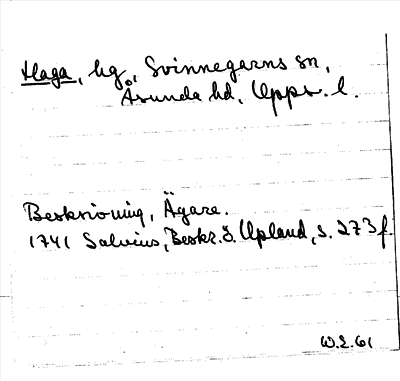 Haga, hg, Svinnegarns sn,
Åsunda hd, Upps. l.
Beskrivning, Ägare.
1741 Salvius, Beskr. ö. Upland, s. 273 f.
W.L. 61